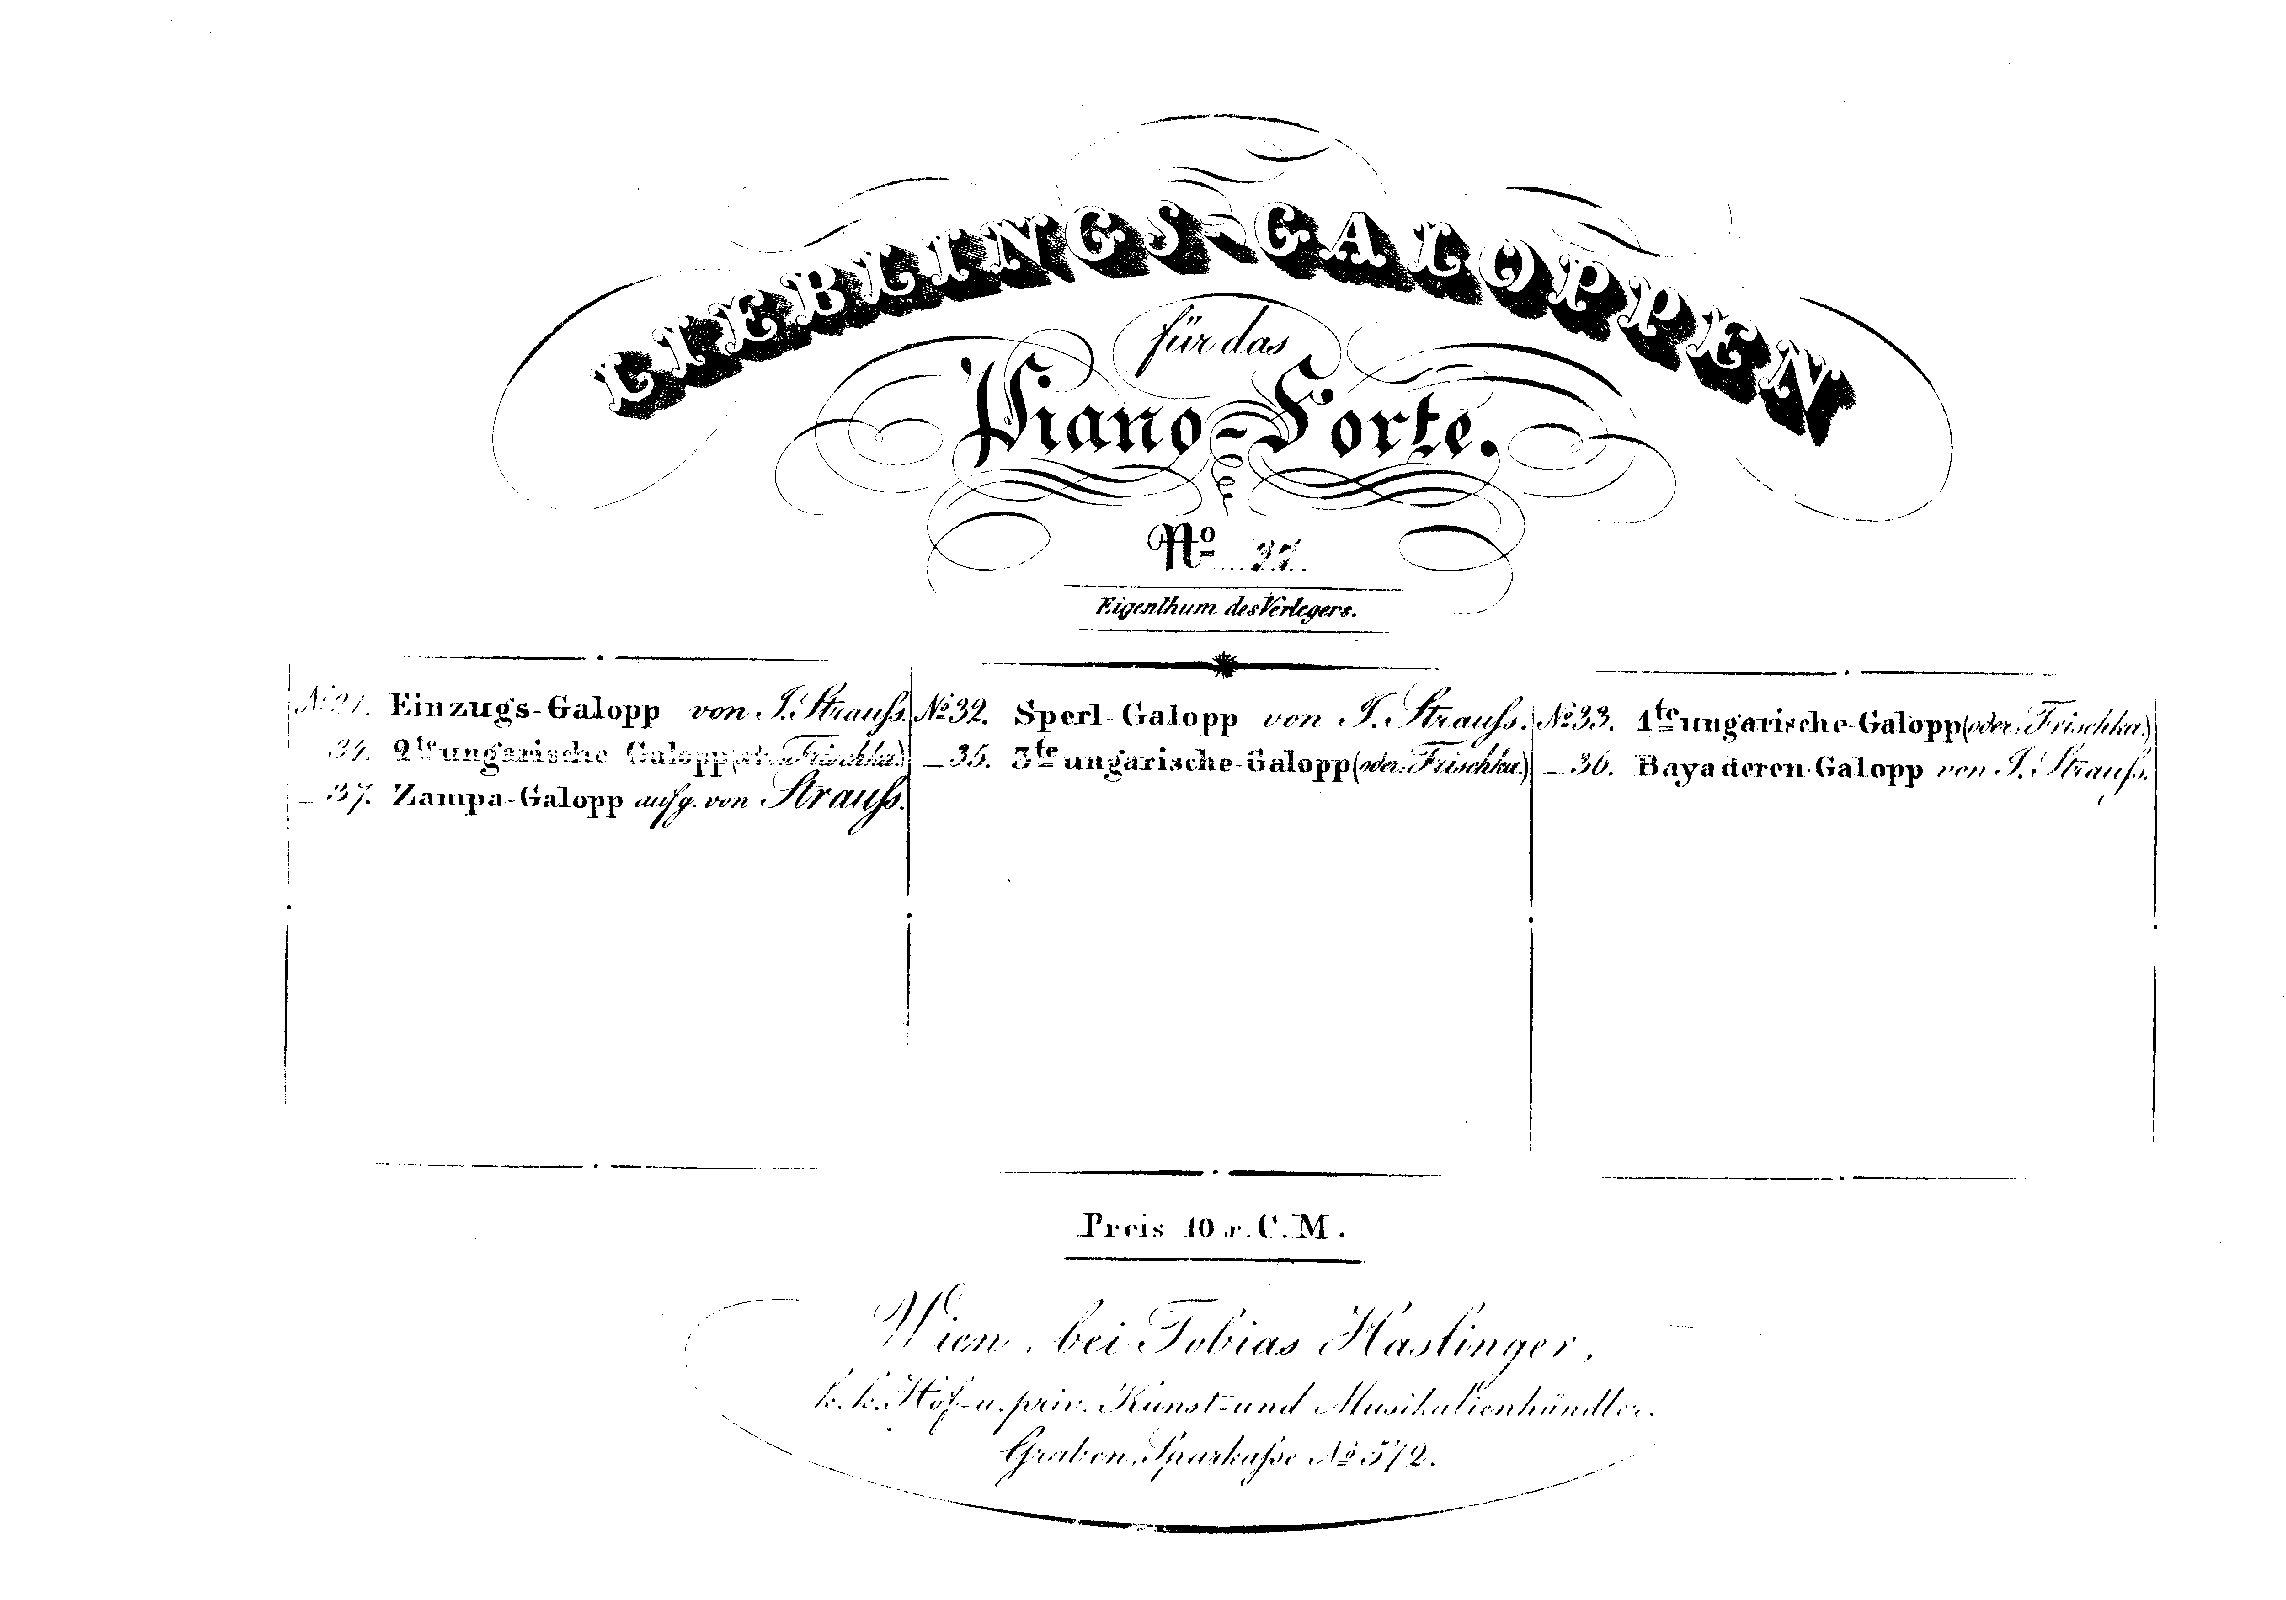 LIEBLINGS-GALOPPEN
für das
Piano-Forte.
No 37.
Eigenthum des Verlegers.
No 21. Einzugs-Galopp von J. Strauss. No 32. Sperl-Galopp von J. Strauss. No 33. 1te ungarische-Galopp (oder Frischka.)
34. 2te ungarische Galopp (oder Frischka.) — 35. 3te ungarische-Galopp (oder Frischka.) — 36. Bayaderen-Galopp von J. Strauss.
— 37. Zampa-Galopp aufg. von Strauss.
Preis 10 x. C. M.
Wien, bei Tobias Haslinger,
k. k. Hof- u. priv. Kunst- und Musikalienhändler.
Graben, Sparkasse No 572.